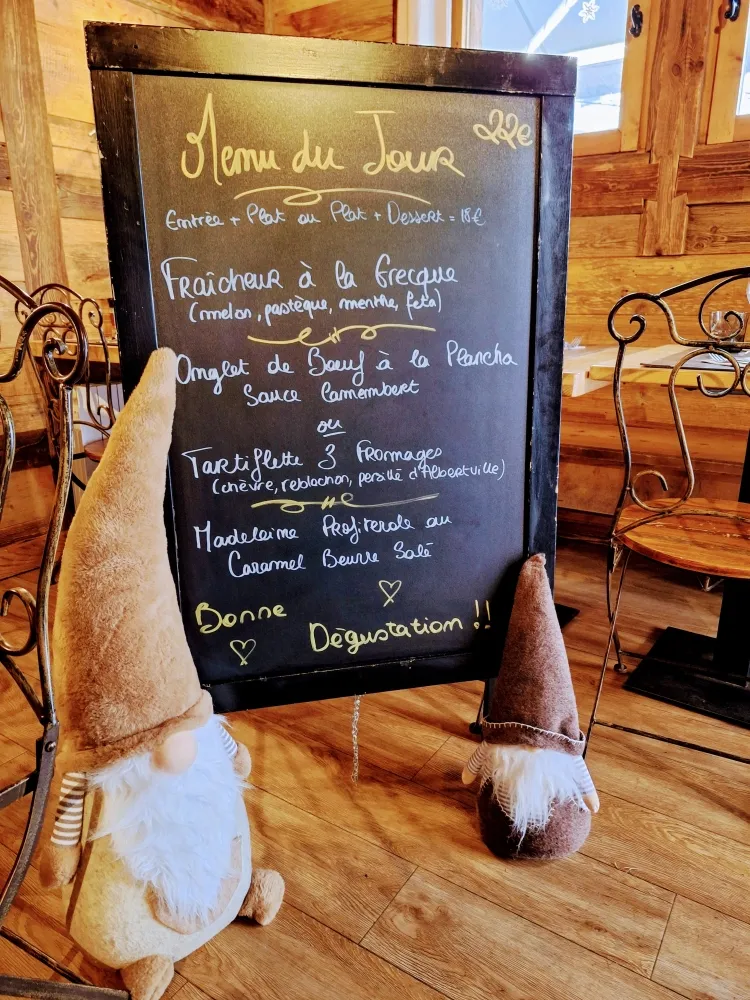 Menu du Jour 22€
Entrée + Plat ou Plat + Dessert = 18€
Fraîcheur à la Grecque
(melon, pastèque, menthe, feta)
Onglet de Bœuf à la Plancha
Sauce Camembert
ou
Tartiflette 3 Fromages
(chèvre, reblochon, persillé d'Albertville)
Madeleine Profiterole au
Caramel Beurre Salé
Bonne
Dégustation !!